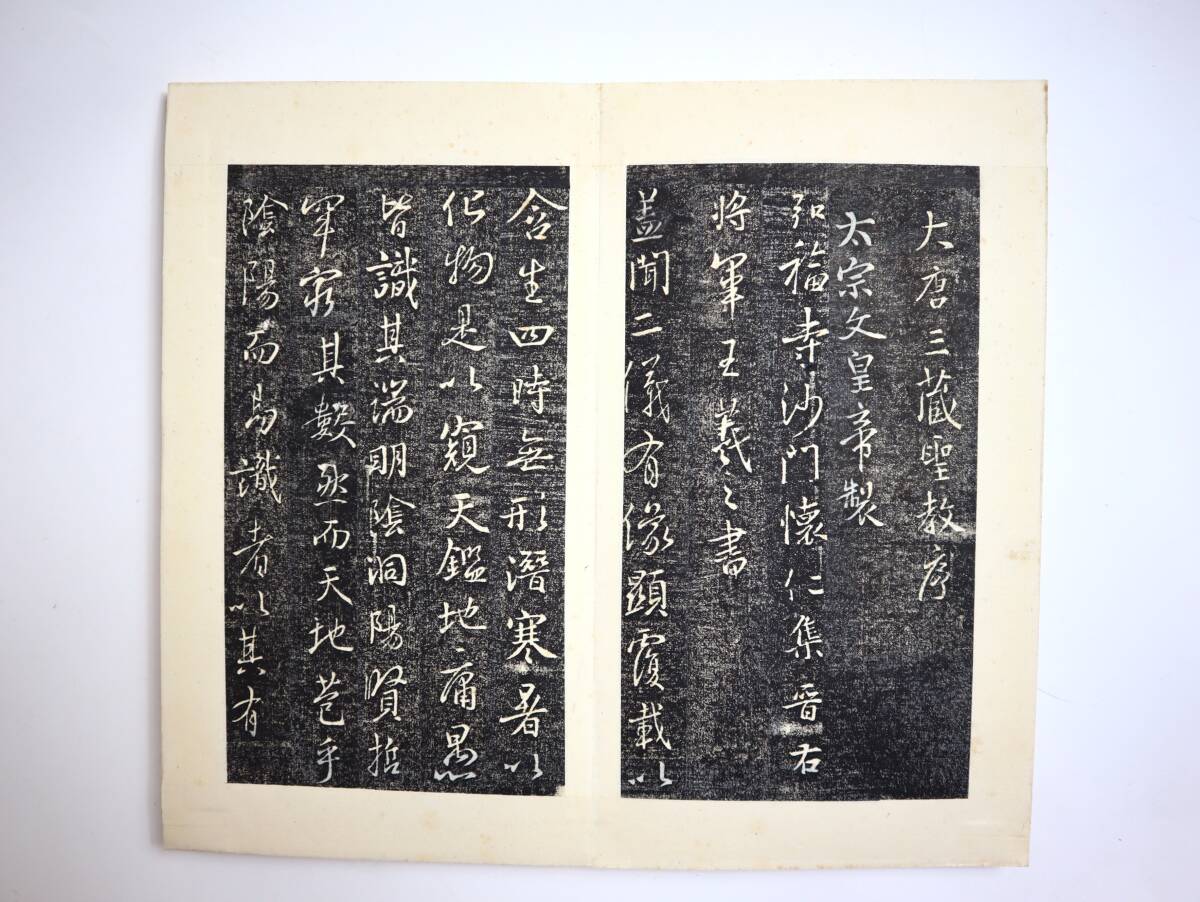 大唐三藏聖教序
太宗文皇帝製
弘福寺沙門懷仁集晉右
將軍王羲之書
蓋聞二儀有像顯覆載以
含生四時無形潛寒暑以
化物是以窺天鑑地庸愚
皆識其端明陰洞陽賢哲
罕窮其數然而天地苞乎
陰陽而易識者以其有